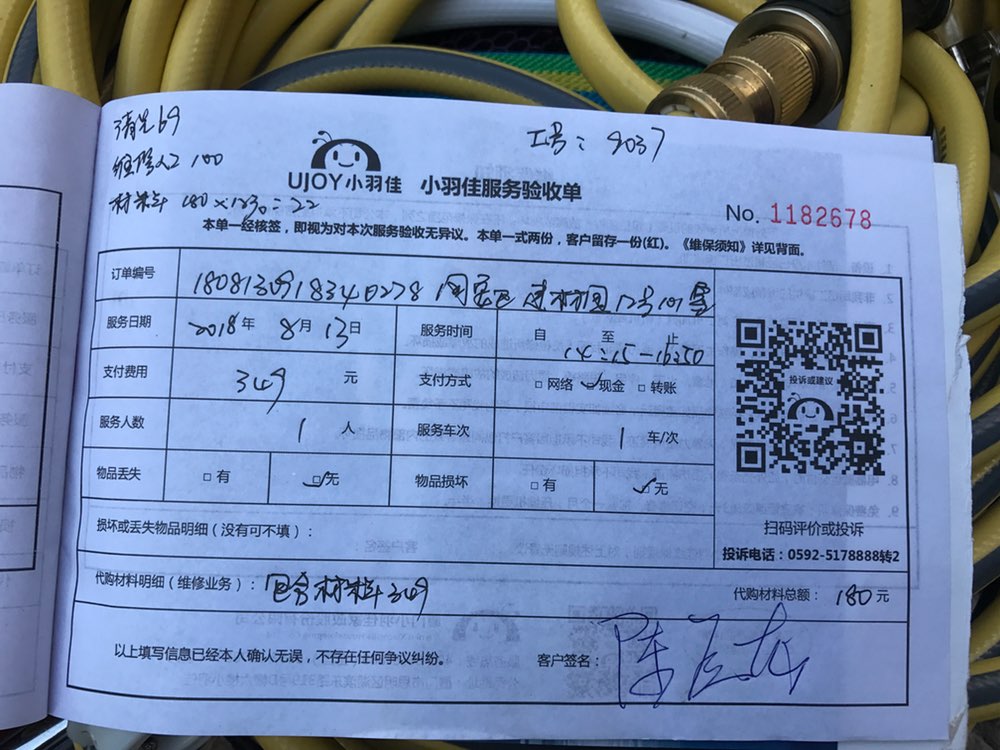 清洗69
工号：8037
维修人工100
UJOY小羽佳 小羽佳服务验收单
材料 180×12%=22
No. 1182678
本单一经核签，即视为对本次服务验收无异议。本单一式两份，客户留存一份(红)。《维保须知》详见背面。
订单编号
服务日期 2018年 8月 13日 服务时间 自 至 止
14:15-16:50
支付费用 349 元 支付方式 网络 现金 转账
投诉或建议
服务人数 1 人 服务车次 1 车/次
物品丢失 有 无 物品损坏 有 无
损坏或丢失物品明细（没有可不填）：
扫码评价或投诉
投诉电话：0592-5178888转2
代购材料明细（维修业务）：包含材料349 代购材料总额：180元
以上填写信息已经本人确认无误，不存在任何争议纠纷。 客户签名：